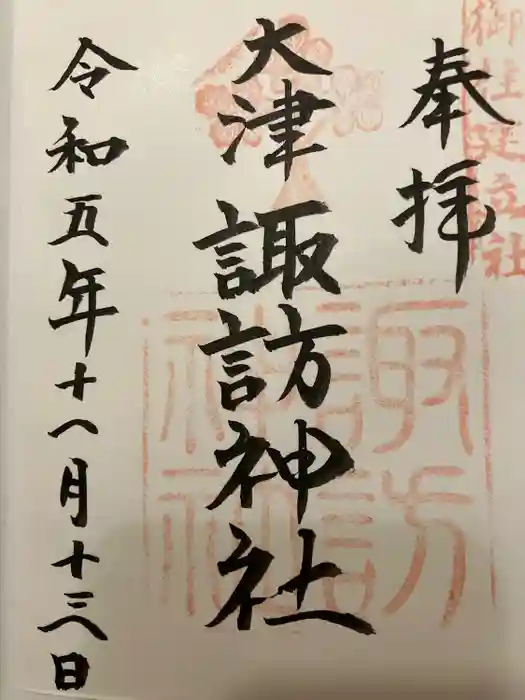 御柱建立社
奉拝
大津諏訪神社
諏訪神社
令和五年十一月十三日